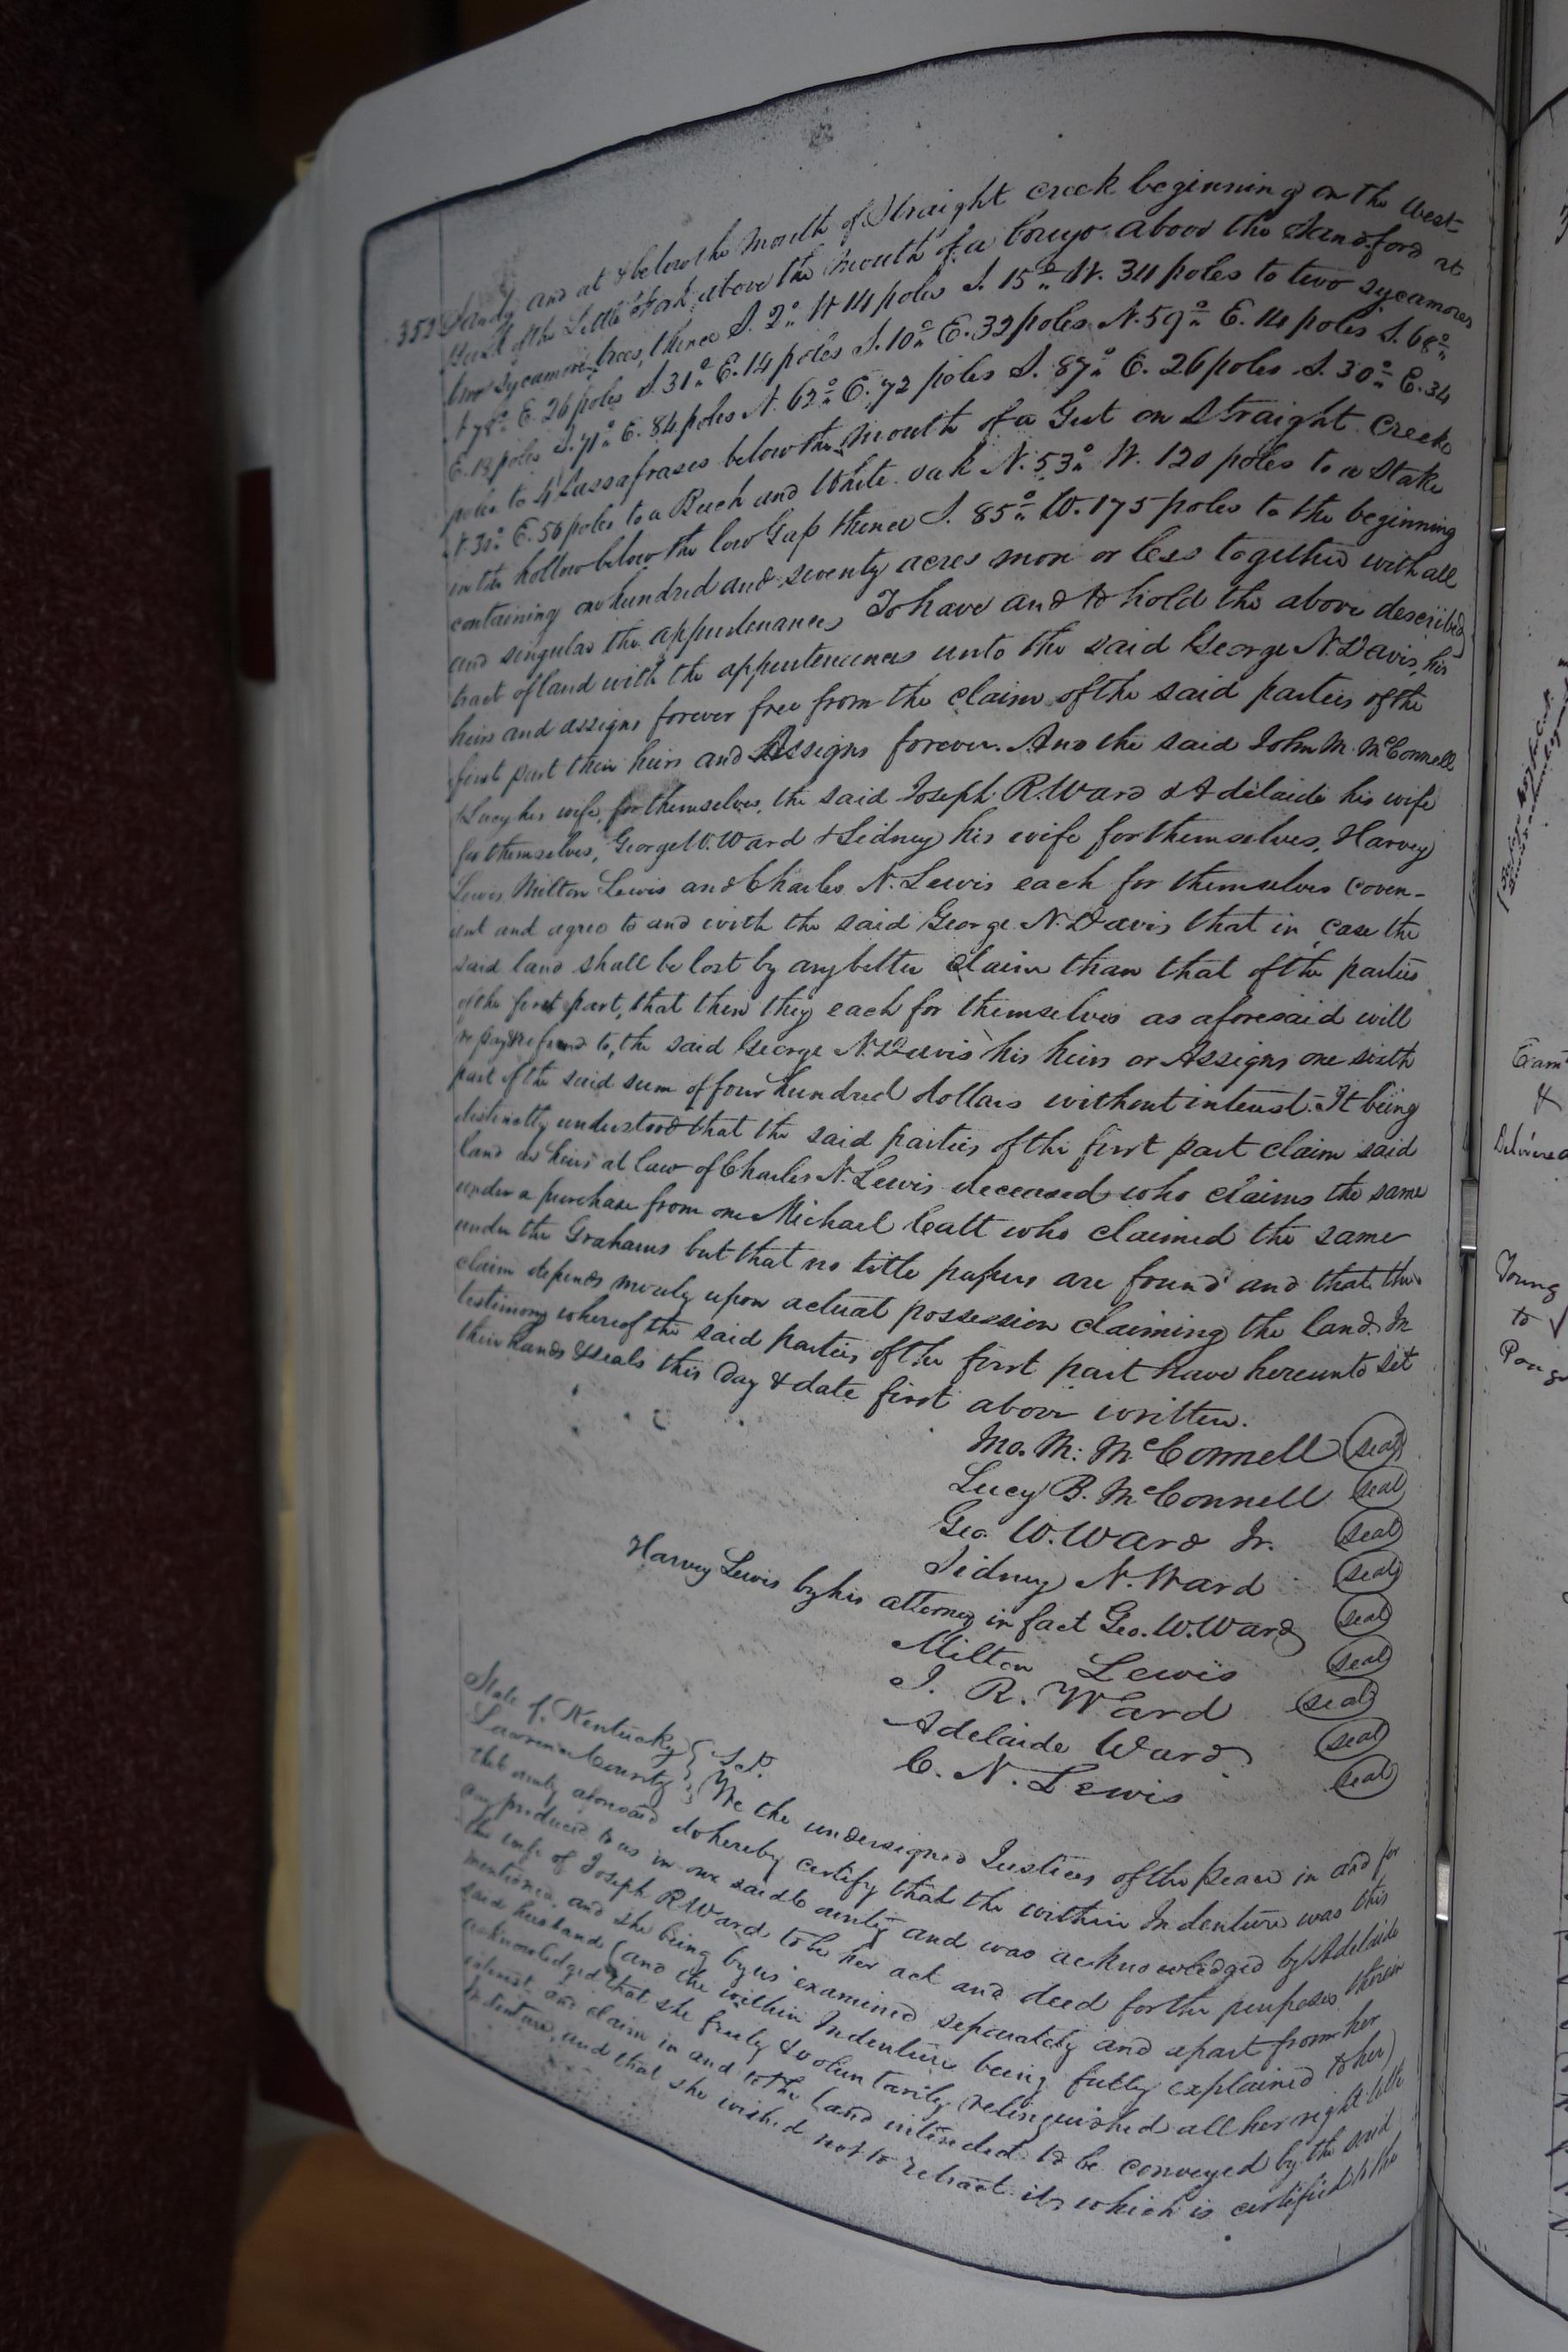 352 Sandy and at & below the mouth of Straight creek beginning on the West-
side of the Little Fork above the mouth of a above the Sandford at
two Sycamore trees, thence S. 2° W 14 poles S. 15° W. 34 poles to two sycamores
N 78° E. 26 poles S. 31° E. 14 poles S. 10° E. 32 poles N. 59° E. 14 poles S. 68°
E. 18 poles S. 71° E. 84 poles N. 62° E. 72 poles S. 87° E. 26 poles S. 30° E. 34
poles to 4 Sassafrases below the mouth of a Gut on Straight Creek
N. 30° E. 50 poles to a Buch and White oak N. 53° W. 120 poles to a Stake
in the hollow below the low Gap thence S. 85° W. 175 poles to the beginning
containing one hundred and seventy acres more or less together with all
and singular the appurtenances, To have and to hold the above described
tract of land with the appurtenances unto the said George N. Davis, his
heirs and assigns forever free from the claim of the said parties of the
first part their heirs and Assigns forever. And the said John M. McConnell
& Lucy his wife, for themselves, the said Joseph R. Ward & Adelaide his wife
for themselves, George W. Ward & Sidney his wife for themselves, Harvey
Lewis, Milton Lewis and Charles N. Lewis each for themselves coven-
ant and agree to and with the said George N. Davis that in case the
said land shall be lost by any better claim than that of the parties
of the first part, that then they each for themselves as aforesaid will
repay & refund to, the said George N. Davis his heirs or Assigns one sixth
part of the said sum of four hundred dollars without interest. It being
distinctly understood that the said parties of the first part claim said
land as heirs at law of Charles N. Lewis deceased who claims the same
under a purchase from one Michael Catt who claimed the same
under the Grahams but that no title papers are found and that the
claim depends merely upon actual possession claiming the land. In
testimony whereof the said parties of the first part have hereunto set
their hands & seals this day & date first above written.
Jno. M. McConnell seal
Lucy B. McConnell seal
Geo. W. Ward Jr. seal
Sidney N. Ward seal
Harvey Lewis by his attorney in fact Geo. W. Ward seal
Milton Lewis seal
J. R. Ward seal
Adelaide Ward seal
C. N. Lewis seal
State of Kentucky } Sct.
Lawrence County } We the undersigned Justices of the peace in and for
the County aforesaid do hereby certify that the within Indenture was this
day produced to us in our said County and was acknowledged by Adelaide
the wife of Joseph R Ward to be her act and deed for the purposes therein
mentioned, and she being by us examined separately and apart from her
said husband (and the within Indenture being fully explained to her)
acknowledged that she freely & voluntarily relinquished all her right title
interest and claim in and to the land intended to be conveyed by the said
Indenture, and that she wished not to retract it, which is certified to the
Exam
&
Delivered
Young
to